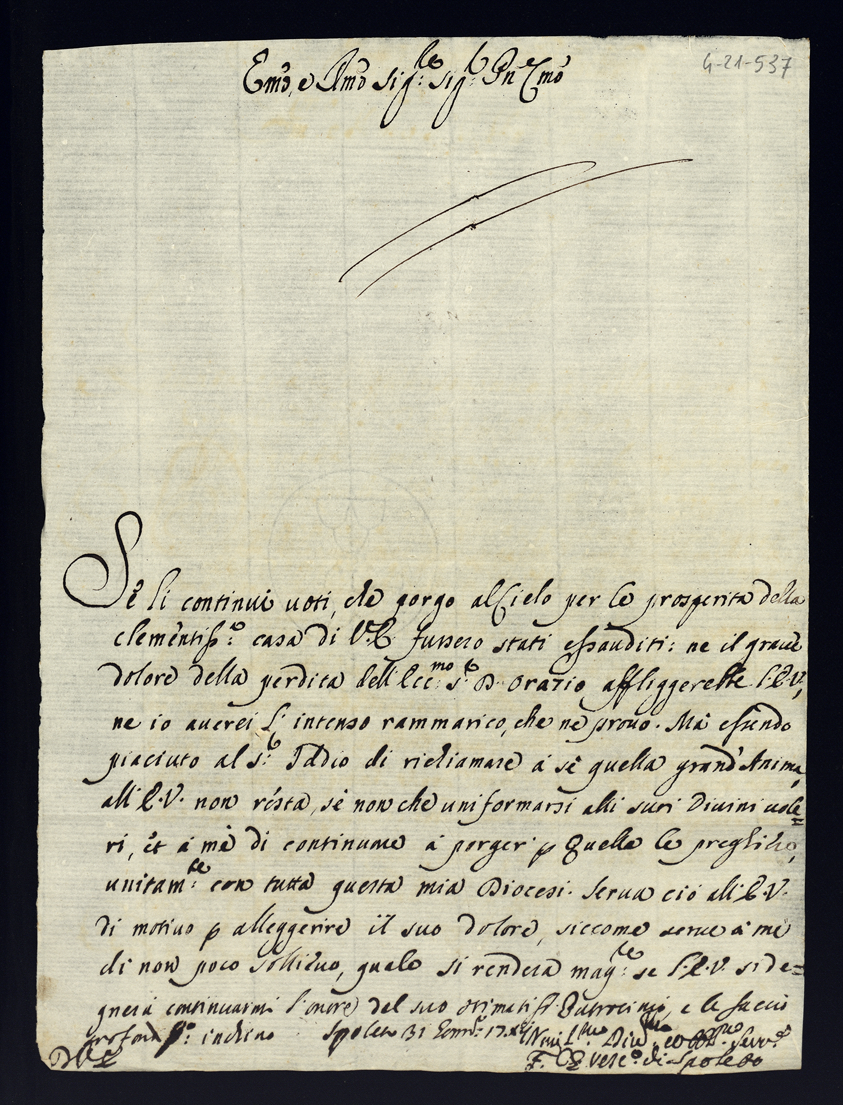 4-21-537
Emo, e Rmo Sigre Sigr Pne Cmo
Se li continui uoti, che porgo al Cielo per le prosperità della
clementissa casa di V.E. fussero stati essauditi: ne il graue
dolore della perdita dell'Eccmo Sr D. Orazio affliggerebbe l'E.V.,
ne io auerei l'intenso rammarico, che ne prouo. Mà essendo
piaciuto al Sr Iddio di richiamare à sè quella grand'Anima,
all'E.V. non résta, sè non che uniformarsi alli suoi Diuini uole=
ri, et à mè di continuare à porger p Quella le preghiere,
unitamte con tutta questa mia Diocesi. Serua ciò all'E.V.
di motiuo p alleggerire il suo dolore, siccome serue à mè
di non poco solliuo, quale si renderà magre se l'E.V. si de=
gnerà continuarmi l'onore del suo stimatismo Patrocinio, e le faccio
profondmo inchino Spoleto 31
D.V.E.
F. Vesco di Spoleto